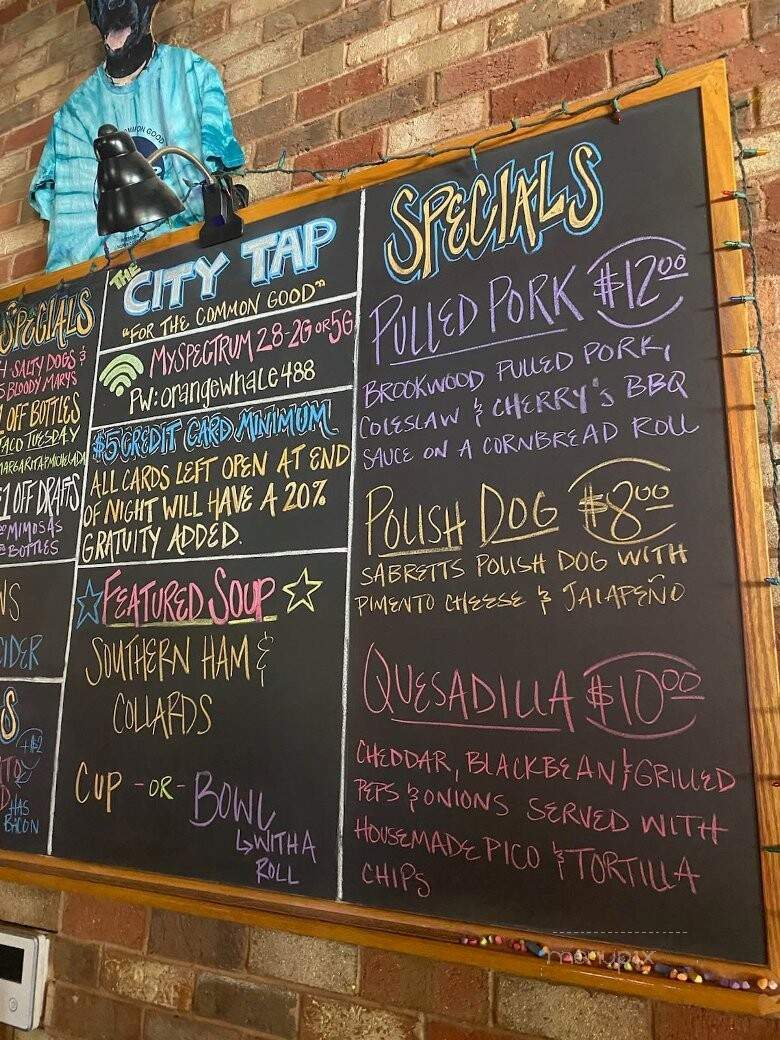 COMMON GOOD
SPECIALS
SALTY DOGS &
BLOODY MARYS
OFF BOTTLES
TACO TUESDAY
MARGARITA/MICHELADA
$1 OFF DRAFTS
MIMOSAS
BOTTLES
CIDER
+$2
HAS
BACON
THE CITY TAP
"FOR THE COMMON GOOD"
MYSPECTRUM 28-2G OR 5G
PW: orangewhale488
$5 CREDIT CARD MINIMUM
ALL CARDS LEFT OPEN AT END
OF NIGHT WILL HAVE A 20%
GRATUITY ADDED.
FEATURED SOUP
SOUTHERN HAM &
COLLARDS
CUP -OR- BOWL
↳WITH A
ROLL
SPECIALS
PULLED PORK $12.00
BROOKWOOD PULLED PORK,
COLESLAW & CHERRY'S BBQ
SAUCE ON A CORNBREAD ROLL
POLISH DOG $8.00
SABRETTS POLISH DOG WITH
PIMENTO CHEESE & JALAPEÑO
QUESADILLA $10.00
CHEDDAR, BLACKBEAN & GRILLED
PEPS & ONIONS SERVED WITH
HOUSEMADE PICO & TORTILLA
CHIPS
menupix